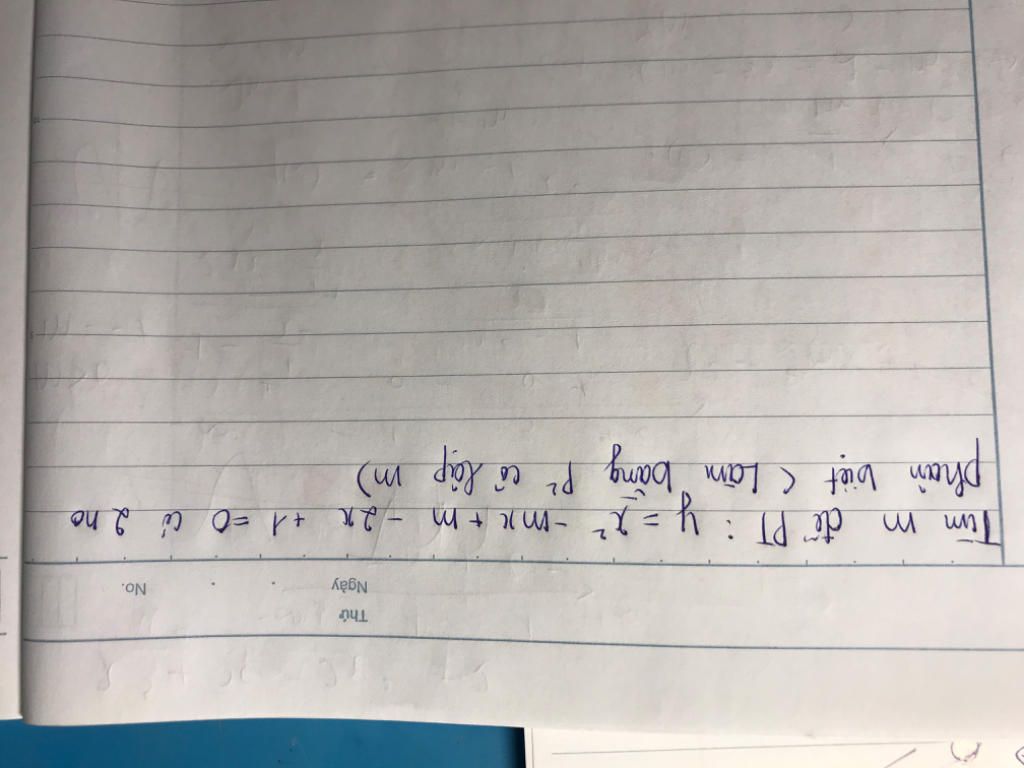 Thứ
Ngày
No.
Tìm m để PT : y = x² - mx + m - 2x + 1 = 0 có 2 no
phân biệt ( Làm bằng p² cô lập m)